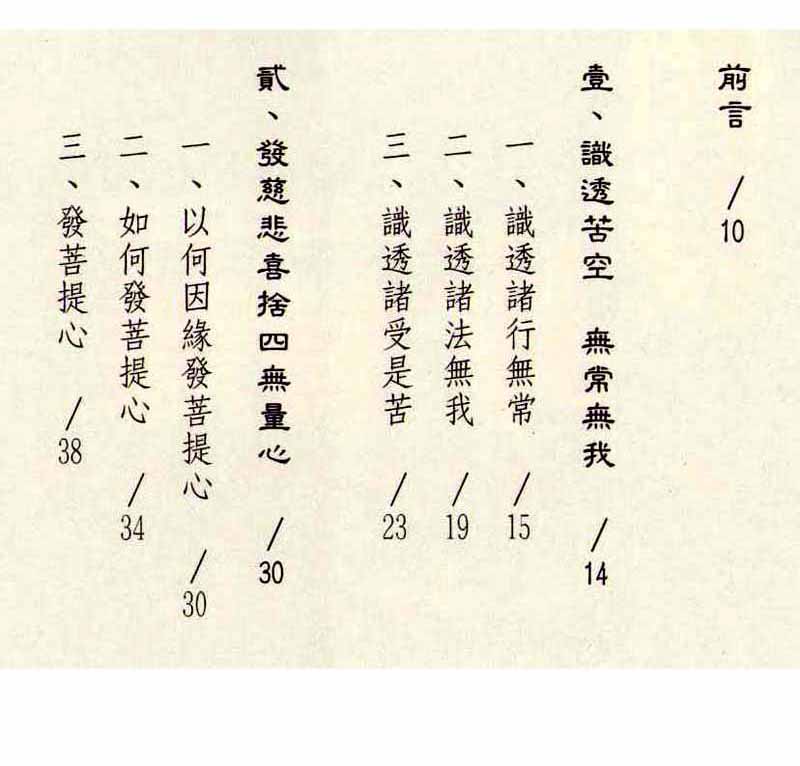 前言 /10
壹、識透苦空 無常無我 /14
一、識透諸行無常 /15
二、識透諸法無我 /19
三、識透諸受是苦 /23
貳、發慈悲喜捨四無量心 /30
一、以何因緣發菩提心 /30
二、如何發菩提心 /34
三、發菩提心 /38